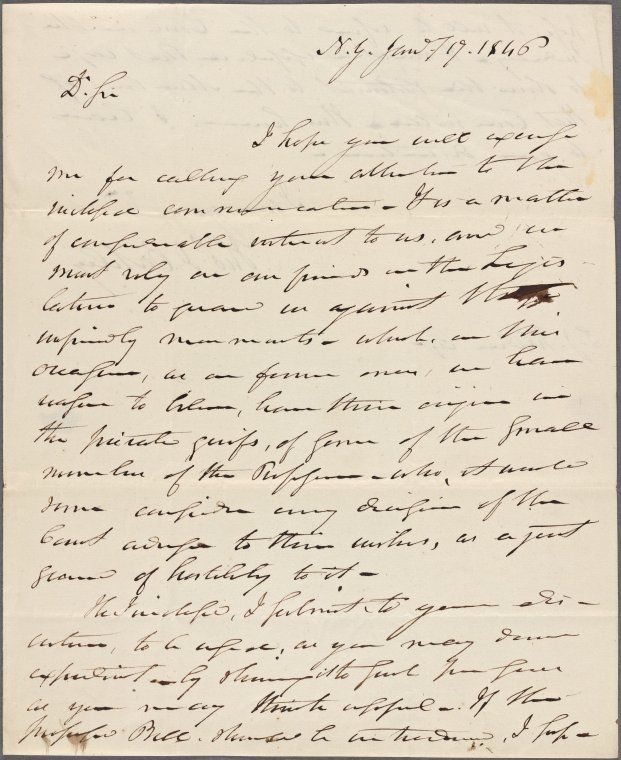 N.Y. Jany 19. 1846
Dr Sir
I hope you will excuse
me for calling your attention to the
inclosed communication - It is a matter
of considerable interest to us, and we
must rely on our friends in the Legis -
lature to guard us against these
unfriendly movements - which, on this
occasion, as on former ones, we have
reason to believe, have their origin in
the private griefs, of some of the small
members of the Profession - who, it would
seem consider any decision of the
Court adverse to their wishes, as a just
ground of hostility to it -
The Inclosed, I submit to your dis -
cretion, to be used, as you may deem
expedient - by showing it to such persons
as you may think useful - If the
proposed Bill should be introduced, I hope